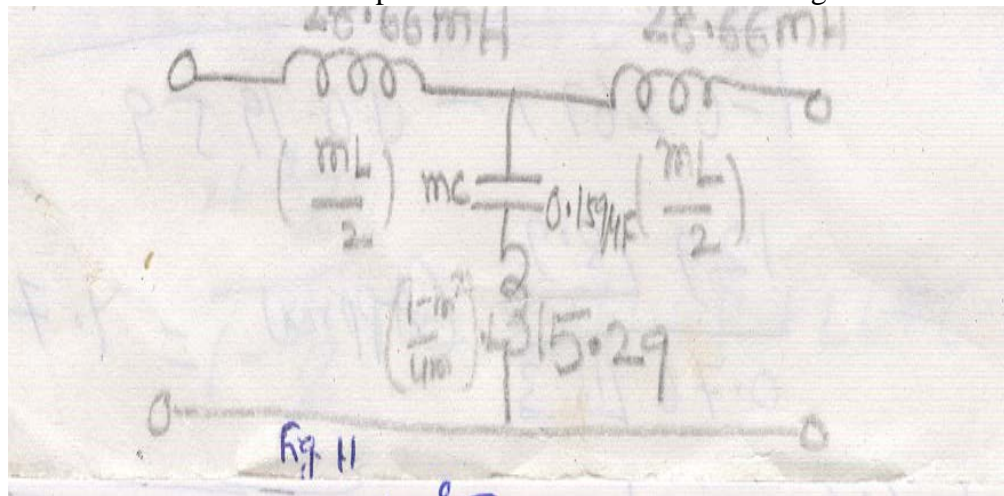 28.66mH 28.66mH
(mL/2) mc 0.159μF (mL/2)
(1-m²/4m).L 15.29
Fig. 11